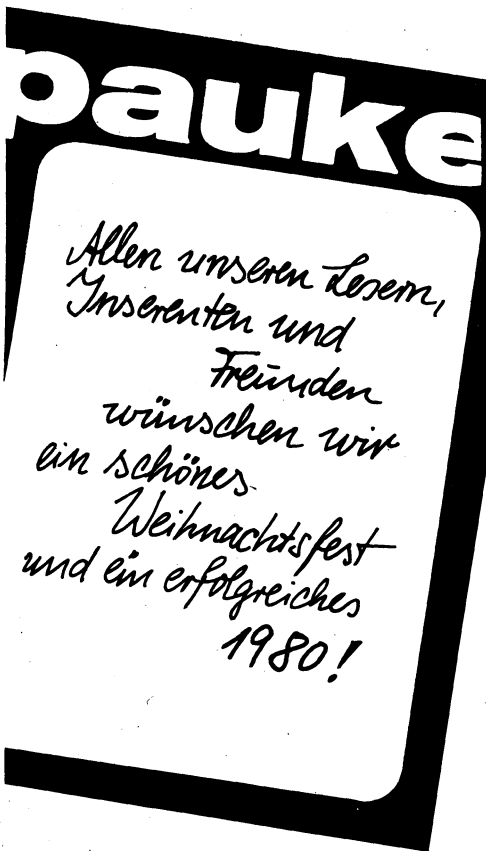 pauke
Allen unseren Lesern,
Inserenten und
Freunden
wünschen wir
ein schönes
Weihnachtsfest
und ein erfolgreiches
1980!